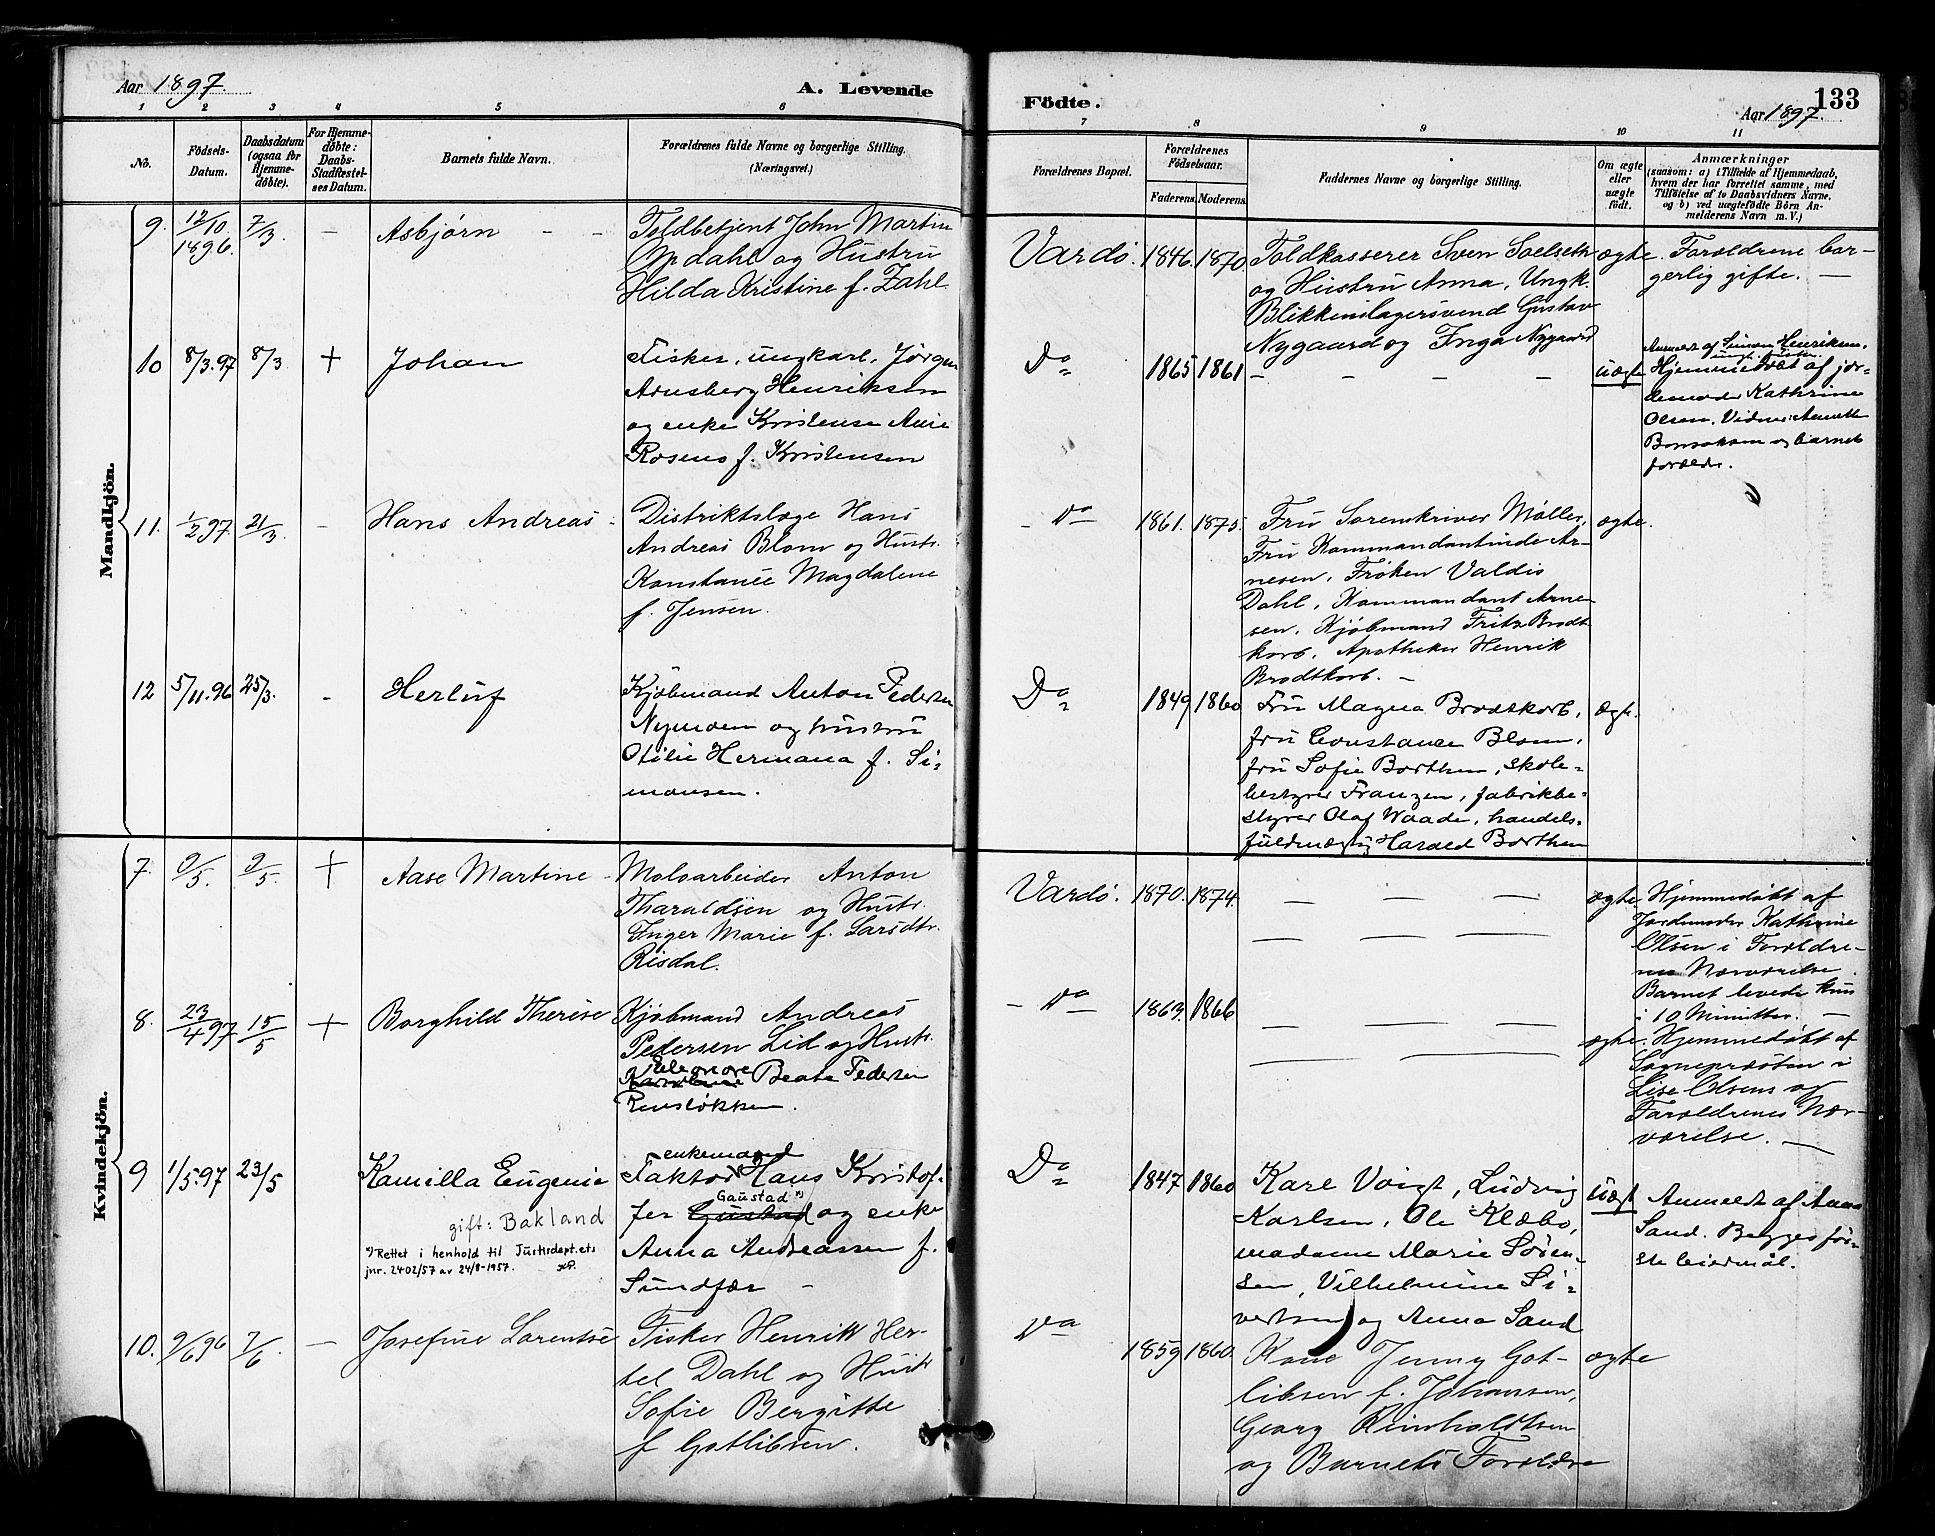 Aar 1897.
A. Levende
Födte.
133
Aar 1897.
1 2 3 4 5 6 7 8 9 10 11
No.
Födsels-
Datum.
Daabsdatum
(ogsaa for
Hjemme-
döbte).
For Hjemme-
döbte:
Daabs-
Stadfæstel-
ses Datum.
Barnets fulde Navn.
Forældrenes fulde Navne og borgerlige Stilling.
(Næringsvei.)
Forældrenes Bopæl.
Forældrenes
Födselsaar.
Faderens. Moderens.
Faddernes Navne og borgerlige Stilling.
Om ægte
eller
uægte
födt.
Anmærkninger
(saasom: a) i Tilfælde af Hjemmedaab,
hvem der har forrettet samme, med
Tilföielse af to Daabsvidners Navne,
og b) ved uægtefödte Börn An-
melderens Navn m. V.)
Mandkjön.
9. 12/10 1896. 7/3. – Asbjørn – –
Toldbetjent John Martin
Opdahl og Hustru
Hilda Kristine f. Zahl
Vardö. 1846. 1870.
Toldkasserer Sven Sælseth
og Hustru Anna, Ungk.
Blikkenslagersvend Gustav
Nygaard og Inga Nygaard
ægte. Forældrene bor-
gerlig gifte. –
10 8/3.97 8/3 + Johan
Fisker, ungkarl, Jørgen
Arnsberg Henriksen
og enke Kristense Anie
Rosens f. Kristensen
Do 1865 1861 – – – –
uægte
Anmeldt af Simon Henriksen,
ungk. fisker.
Hjemmedøbt af jor-
demoder Kathrine
Olsen. Vidner: Annette
og barnets
forældre.
11. 1/2 97. 21/3. – Hans Andreas –
Distriktslæge Hans
Andreas Blom og Hustr.
Konstance Magdalene
f. Jensen.
– Do 1861. 1875.
Fru Sorenskriver Møller,
Fru Kommandantinde Ar-
nesen, Frøken Valdis
Dahl, Kommandant Arne-
sen, Kjøbmand Fritz Brodt-
korb, Apotheker Henrik
Brodtkorb. –
ægte.
12 5/11.96 25/3. – Herluf
Kjøbmand Anton Pedersen
Nymoen og hustru
Otilie Hermana f. Si-
monsen.
Do 1849 1860
Fru Magna Brodtkorb,
fru Constance Blom,
fru Sofie Borthen, skole-
bestyrer Franzen, fabrikbe-
styrer Olaf Waade, handels-
fuldmægtig Harald Borthen
ægte.
Kvindekjön.
7. 9/5. 9/5. + Aase Martine –
Moloarbeider Anton
Tharaldsen og Hustr.
Inger Marie f. Larsdtr.
Risdal.
Vardö. 1870. 1874. – – –
– – –
ægte. Hjemmedøbt af
Jordemoder Kathrine
Olsen i Forældre-
nes Nærværelse.
Barnet levede kun
i 10 Minutter. –
8. 23/4 97 15/5 + Borghild Therese
Kjøbmand Andreas
Pedersen Lid og Hustr.
Eleonore
Beate Pedersen
Rensløkken.
– Do 1863. 1866 – – –
– –
ægte. Hjemmedøbt af
Sognepræsten i
Lise Olsens og
Forældrenes Nær-
værelse. –
9 1/5.97 23/5 Kamilla Eugenie
gift: Bakland
*) Rettet i henhold til Justisdept.ets
jnr. 2402/57 av 24/8-1957.
enkemand
Faktor Hans Kristof-
Gaustad *)
fer Gustad og enke
Anna Andreassen f.
Sundfær –
Do 1847 1860
Karl Voigt, Ludvig
Karlsen, Ole Klæbo,
madame Marie Søren-
sen, Vilhelmine Si-
vertsen og Anna Sand
uægt
Anmeldt af Anna
Sand. Begges før-
ste leiermål.
10. 9/6 96 7/6. – Josefine Lorentse
Fisker Henrik Her-
tel Dahl og Hustr
Sofie Bergitte
f Gotlibsen.
Do 1859 1860.
Kone Jenny Got-
libsen f. Johansen,
Georg Reinholdtsen
og Barnets Forældre
ægte